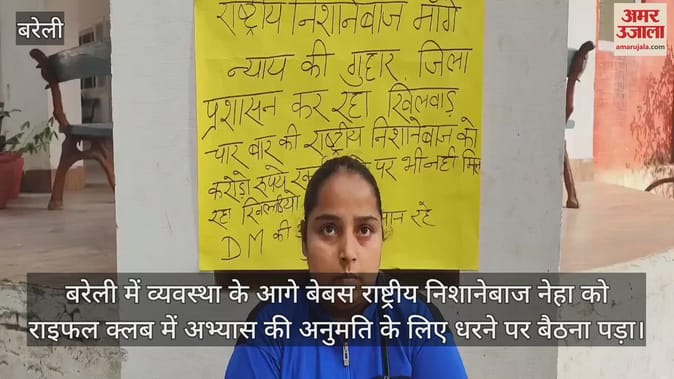 बरेली
अमर
उजाला
amarujala.com
राष्ट्रीय निशानेबाज माँगे
न्याय की गुहार, जिला
प्रशासन कर रहा खिलवाड़
चार बार की राष्ट्रीय निशानेबाज को
करोड़ो रूपये पर भी नही मिल
रहा रहे
DM की
बरेली में व्यवस्था के आगे बेबस राष्ट्रीय निशानेबाज नेहा को
राइफल क्लब में अभ्यास की अनुमति के लिए धरने पर बैठना पड़ा।